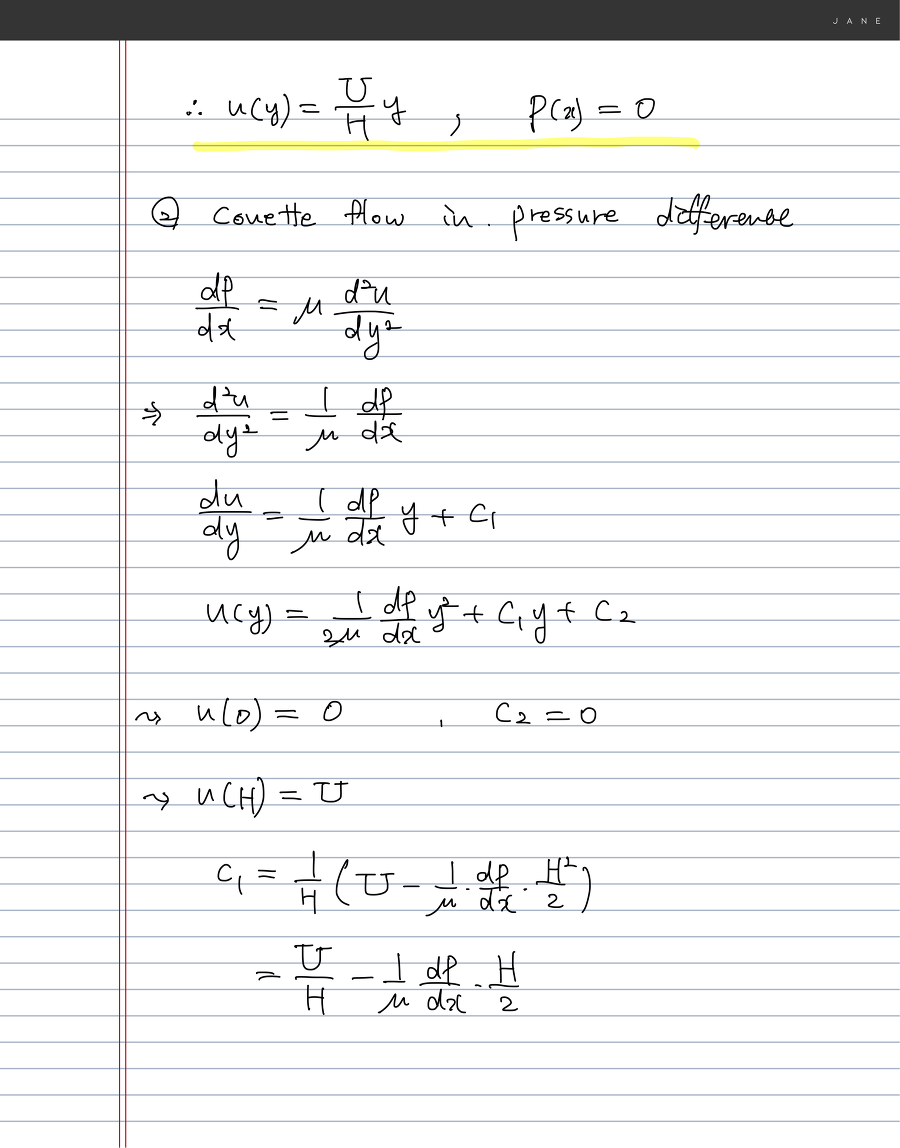 JANE
∴ u(y) = U/H y , P(x) = 0
② Couette flow in. pressure difference
dP/dx = μ d²u/dy²
⇒ d²u/dy² = 1/μ dP/dx
du/dy = 1/μ dP/dx y + C₁
u(y) = 1/2μ dP/dx y² + C₁y + C₂
⤳ u(0) = 0 , C₂ = 0
⤳ u(H) = U
C₁ = 1/H (U - 1/μ · dP/dx · H²/2)
= U/H - 1/μ dP/dx · H/2